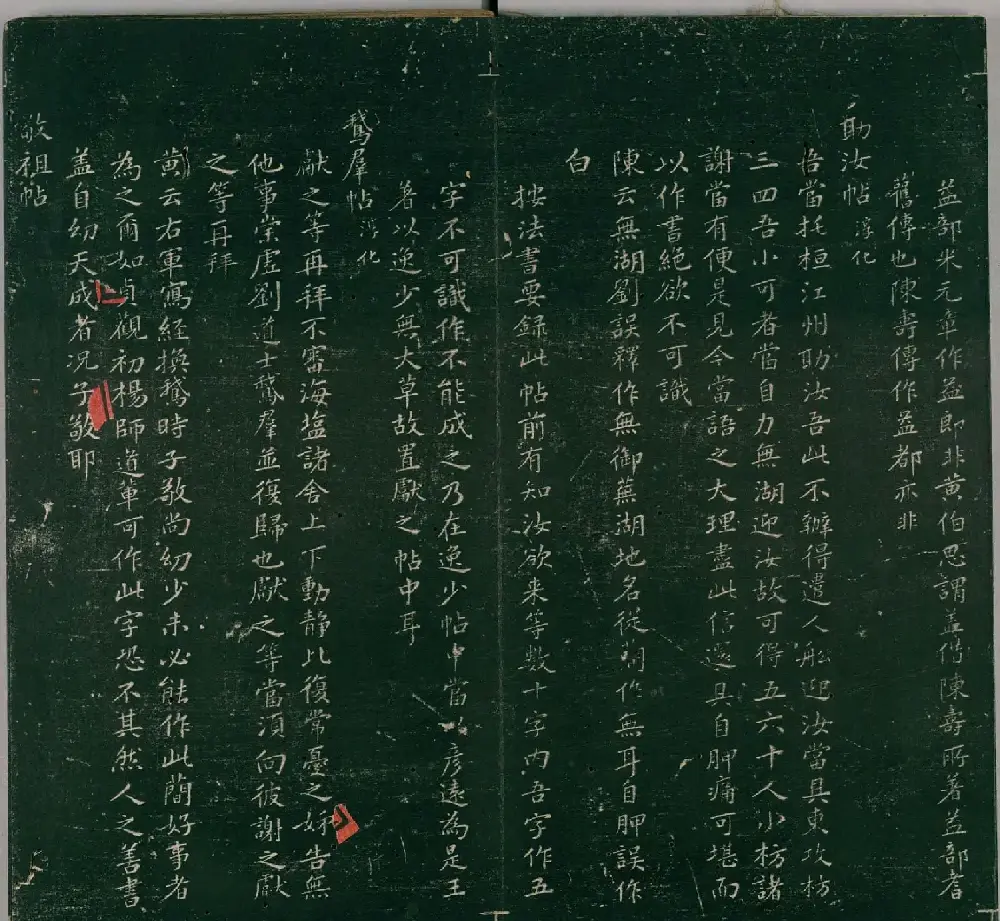 益部米元章作益即非黄伯思謂蓋偁陳壽所著益部耆
舊傳也陳壽傳作益都亦非
助汝帖 淳化
吾當托桓江州助汝吾此不辦得遣人舩迎汝當具東改枋
三四吾小可者當自力無湖迎汝故可得五六十人小枋諸
謝當有便是見今當語之大理盡此信還具自胛痛可堪而
以作書絕欲不可識
陳云無湖劉誤釋作無御蕪湖地名從閣作無耳自胛誤作
白
按法書要録此帖前有知汝欲来等數十字内吾字作五
字不可識作不能成之乃在逸少帖中當以彦遠為是王
著以逸少無大草故置獻之帖中耳
鵝羣帖 淳化
獻之等再拜不審海塩諸舍上下動静比復常憂之姊告無
他事崇虚劉道士鵝羣並復歸也獻之等當須向彼謝之獻
之等再拜
黄云右軍寫經換鵝時子敬尚幼少未必能作此簡好事者
為之爾如貞觀初楊師道軰可作此字恐不其然人之善書
蓋自幼天成者况子敬耶
敬祖帖